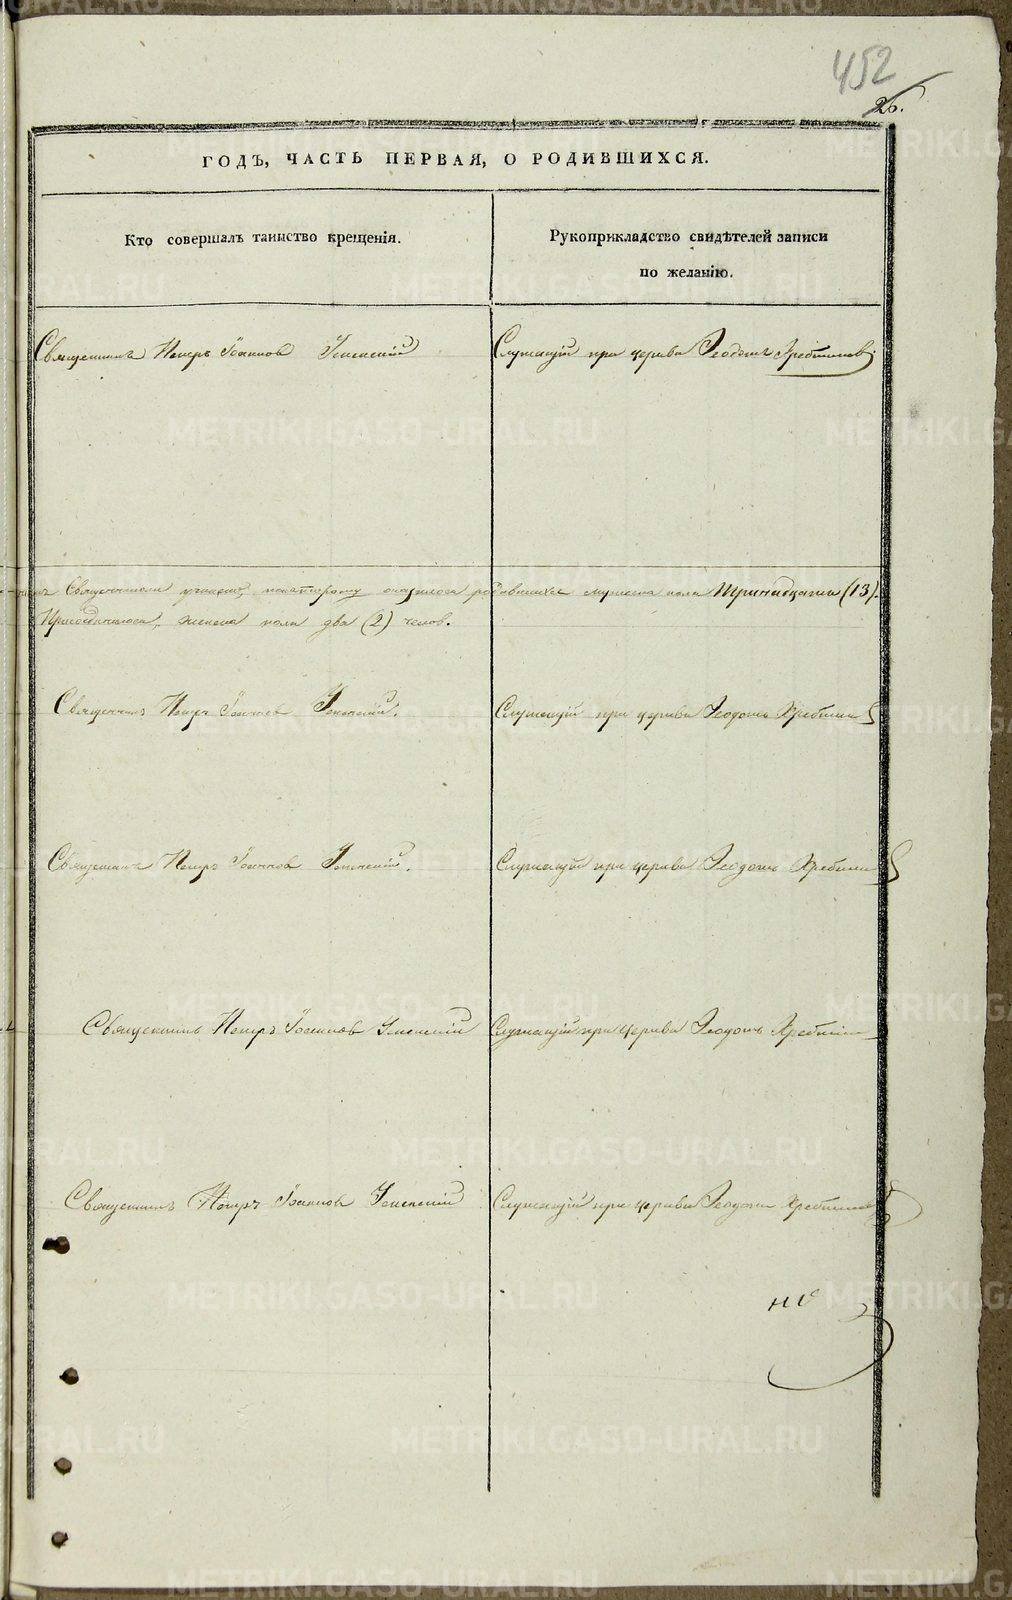 452
26.
ГОДЪ, ЧАСТЬ ПЕРВАЯ, О РОДИВШИХСЯ.
Кто совершалъ таинство крещенія.
Рукоприкладство свидѣтелей записи
по желанію.
Священникъ Петръ Іоанновъ Успенскій
Служащій при церкви Ѳеодотъ
Священниками родившихся мужеска пола Тринадцать (13).
женска пола два (2) челов.
Священникъ Петръ Іоанновъ Успенскій.
Служащій при церкви Ѳеодотъ
Священникъ Петръ Іоанновъ Успенскій.
Служащій при церкви Ѳеодотъ
Священникъ Петръ Іоанновъ Успенскій
Служащій при церкви Ѳеодотъ
Священникъ Петръ Іоанновъ Успенскій
Служащій при церкви Ѳеодотъ
METRIKI.GASO-URAL.RU